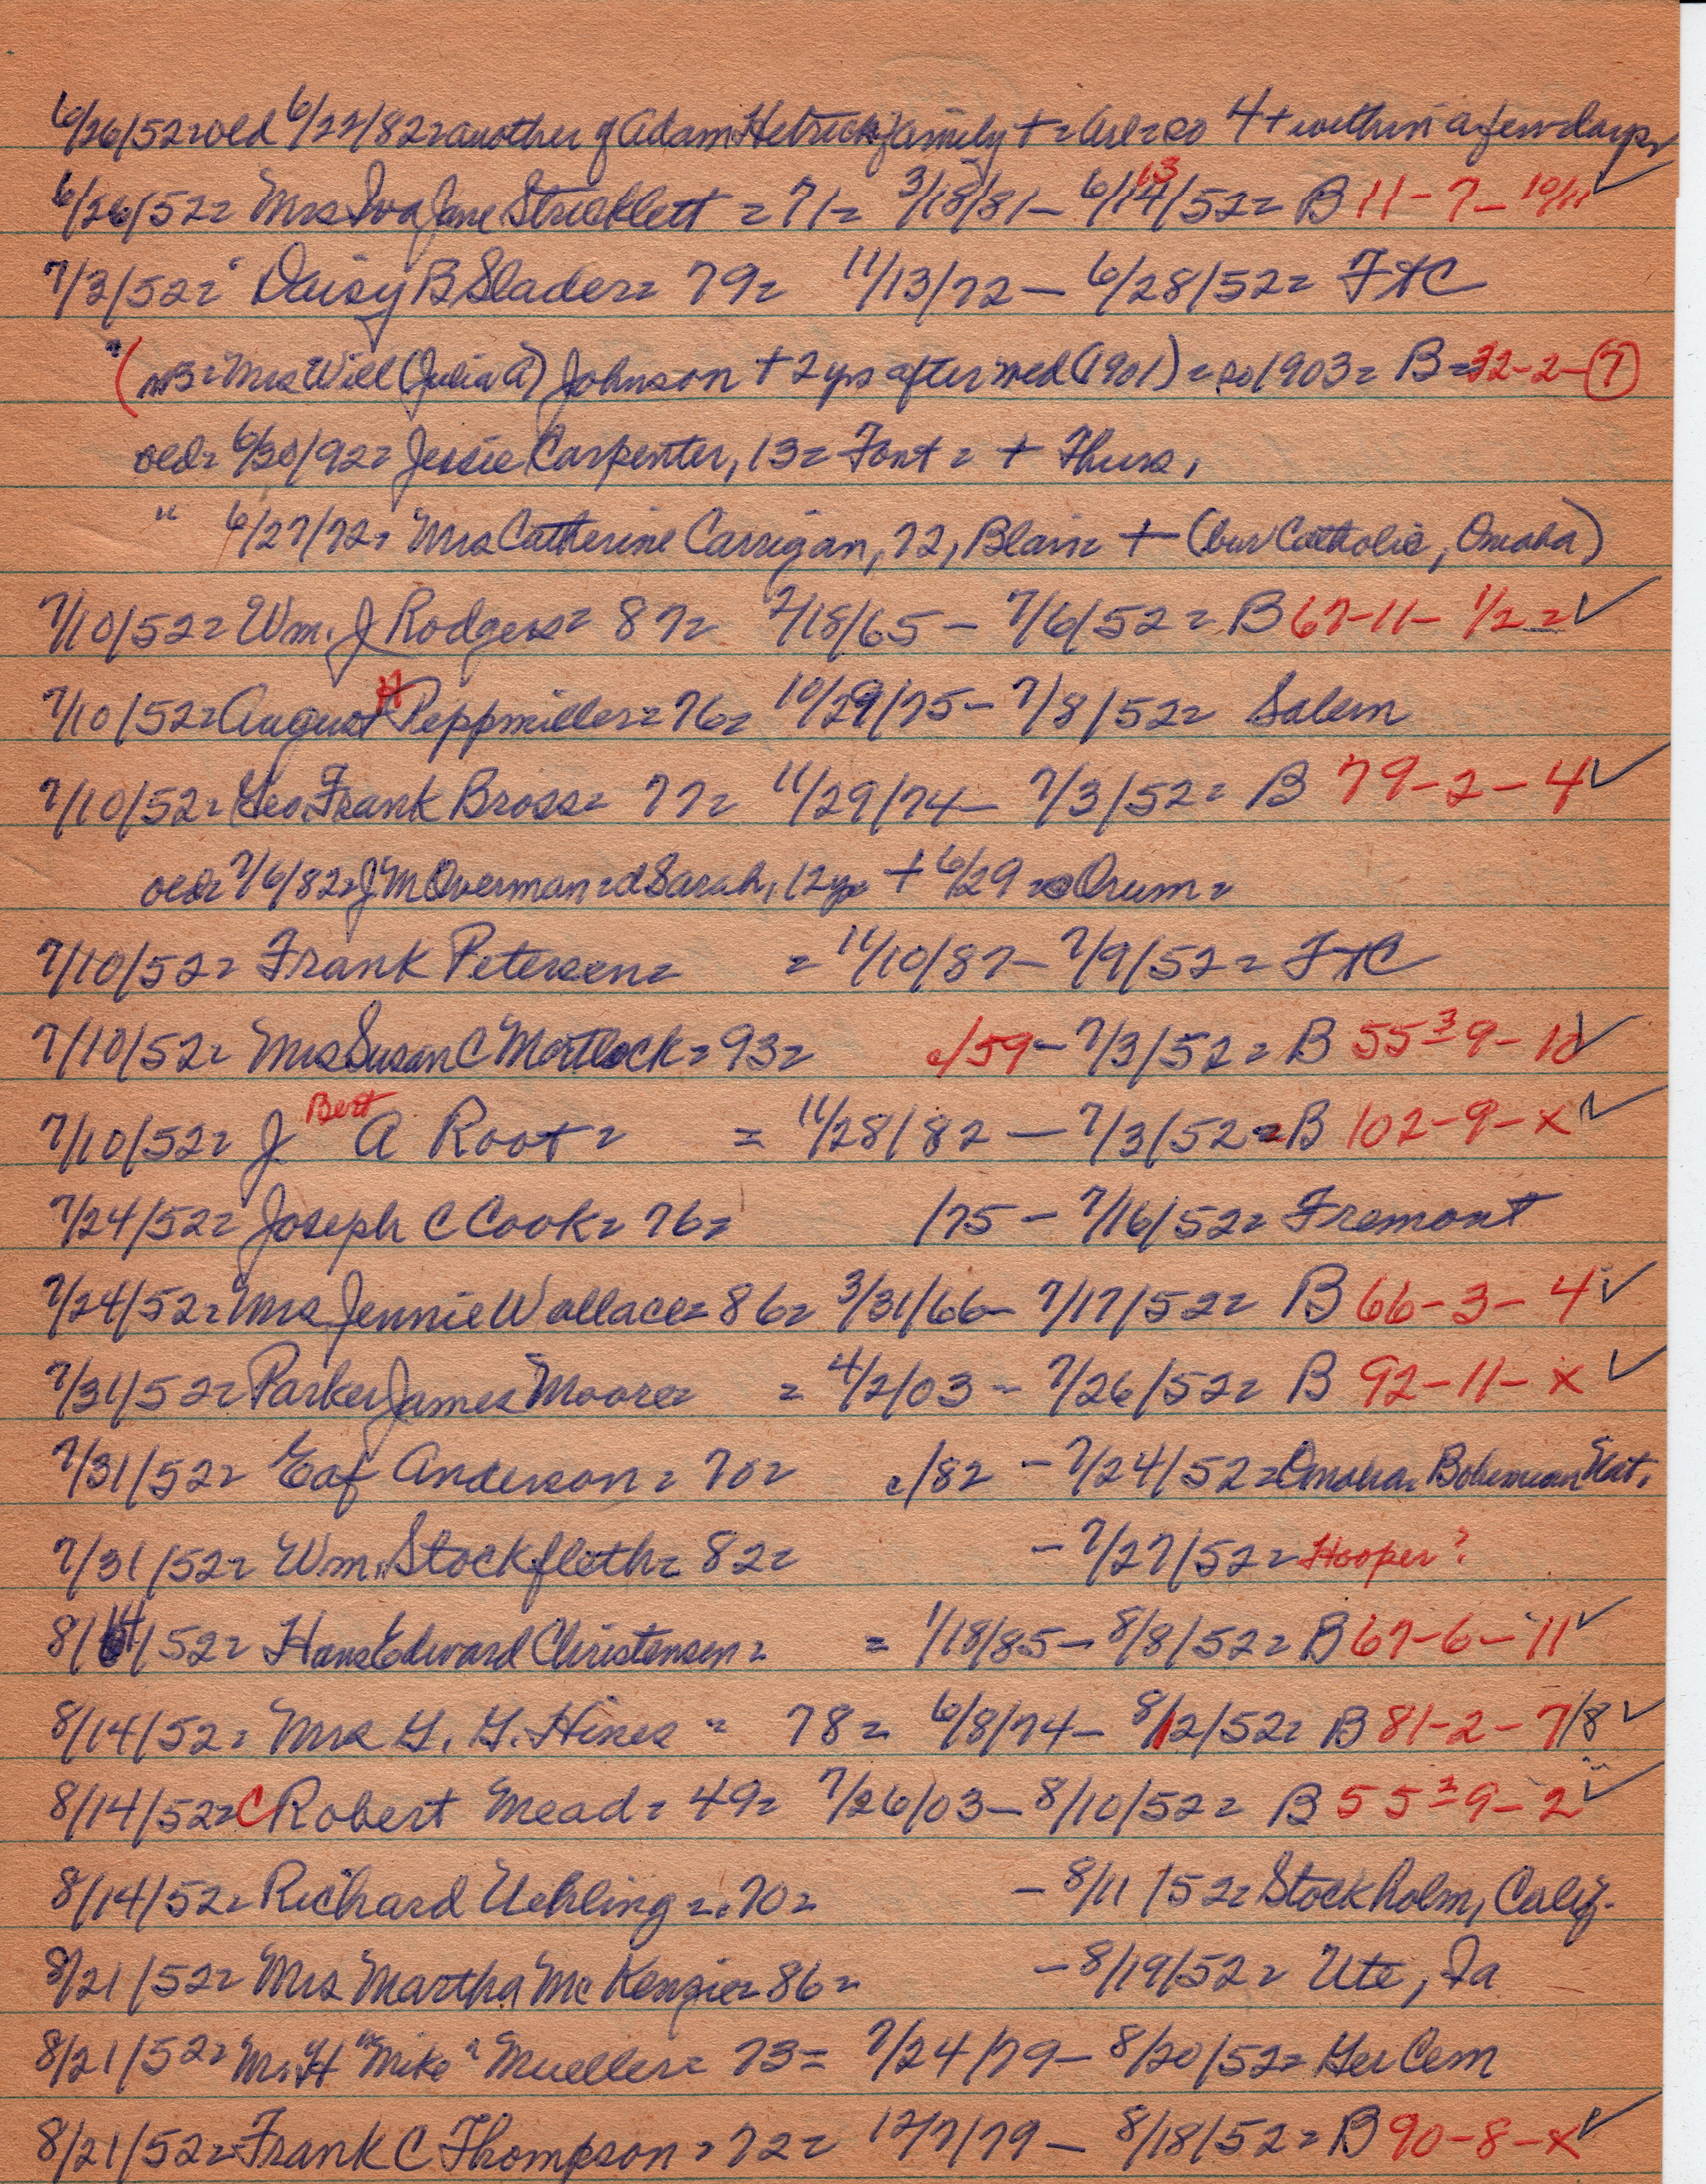 6/26/52 = old 6/22/82 = another of Adam Hetrick family + = Arl = so 4 + within a few days ✓
6/26/52 = Mrs Iva Jane Stricklett = 71 = 3/18/81 - 6/13/52 = B 11-7-10/11 ✓
7/3/52 = Daisy B Slader = 79 = 11/13/72 - 6/28/52 = FtC
(NB = Mrs Will (Julia A) Johnson + 2 yrs after wed (1901) = so 1903 = B = 32-2-(7)
old = 6/30/92 = Jessie Carpenter, 13 = Font = + Thurs,
" 6/27/72, Mrs Catherine Carrigan, 72, Blair = + (bur Catholic, Omaha)
7/10/52 = Wm. J Rodgers = 87 = 2/18/65 - 7/6/52 = B 67-11-1/2 = ✓
7/10/52 = August H Peppmiller = 76 = 10/29/75 - 7/8/52 = Salem
7/10/52 = Geo. Frank Bross = 77 = 11/29/74 - 7/3/52 = B 79-2-4 ✓
old = 7/6/82 = J M Overman = d Sarah, 12 yr + 6/29 = Orum =
7/10/52 = Frank Petersen = = 11/10/87 - 7/9/52 = FtC
7/10/52 = Mrs Susan C Mortlock = 93 = c/59 - 7/3/52 = B 55 3 9-12 ✓
7/10/52 = J Bert A Root = = 11/28/82 - 7/3/52 = B 102-9-x ✓
7/24/52 = Joseph C Cook = 76 = /75 - 7/16/52 = Fremont
7/24/52 = Mrs Jennie Wallace = 86 = 3/31/66 - 7/17/52 = B 66-3-4 ✓
7/31/52 = Parker James Moore = = 4/2/03 - 7/26/52 = B 92-11-x ✓
7/31/52 = Eaf Anderson = 70 = c/82 - 7/24/52 = Omaha = Bohemian Nat.
7/31/52 = Wm. Stockfleth = 82 = - 7/27/52 = Hooper?
8/14/52 = Hans Edward Christensen = = 1/18/85 - 8/8/52 = B 67-6-11 ✓
8/14/52 = Mrs G. G. Hines = 78 = 6/8/74 - 8/12/52 = B 81-2-7/8 ✓
8/14/52 = C Robert Mead = 49 = 7/26/03 - 8/10/52 = B 55 3 9-2 ✓
8/14/52 = Richard Uehling = 70 = - 8/11/52 = Stockholm, Calif.
8/21/52 = Mrs Martha McKenzie = 86 = - 8/19/52 = Ute, Ia
8/21/52 = M. H "Mike" Mueller = 73 = 7/24/79 - 8/20/52 = Ger Cem
8/21/52 = Frank C Thompson = 72 = 12/7/79 - 8/18/52 = B 90-8-x ✓